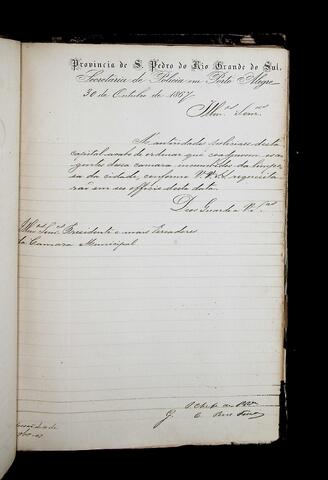 Provincia de S. Pedro do Rio Grande do Sul.
Secretaria de Policia em Porto Alegre
30 de Outubro de 1867
Illm.os Senr.es
autoridades policiaes desta
capital acabo de ordenar que coadjuvem os a
gentes dessa camara incumbidos da limpe
sa da cidade, conforme V.V.S.S. requisita
rão em seu officio desta data.
Deos Guarde a V.S.as
Illm.os Senr.es Presidente e mais Vereadores
da Camara Municipal
O Chefe